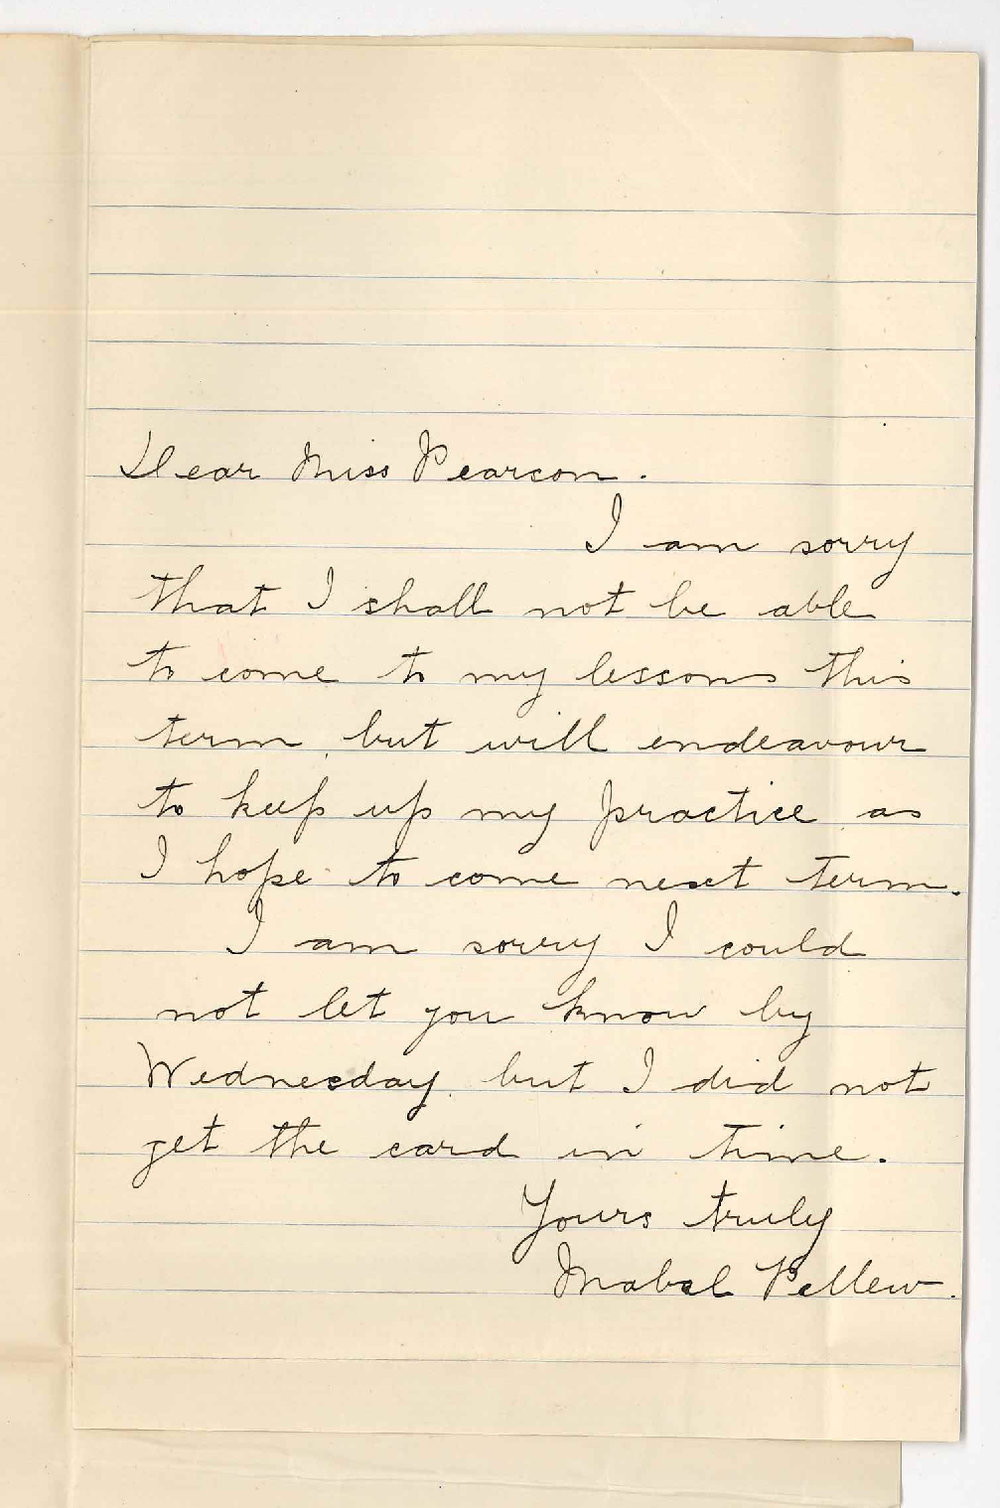 Dear Miss Pearson.
I am sorry
that I shall not be able
to come to my lessons this
term, but will endeavour
to keep up my practice as
I hope to come next term.
I am sorry I could
not let you know by
Wednesday, but I did not
get the card in time.
Yours truly
Mabel Pellew.